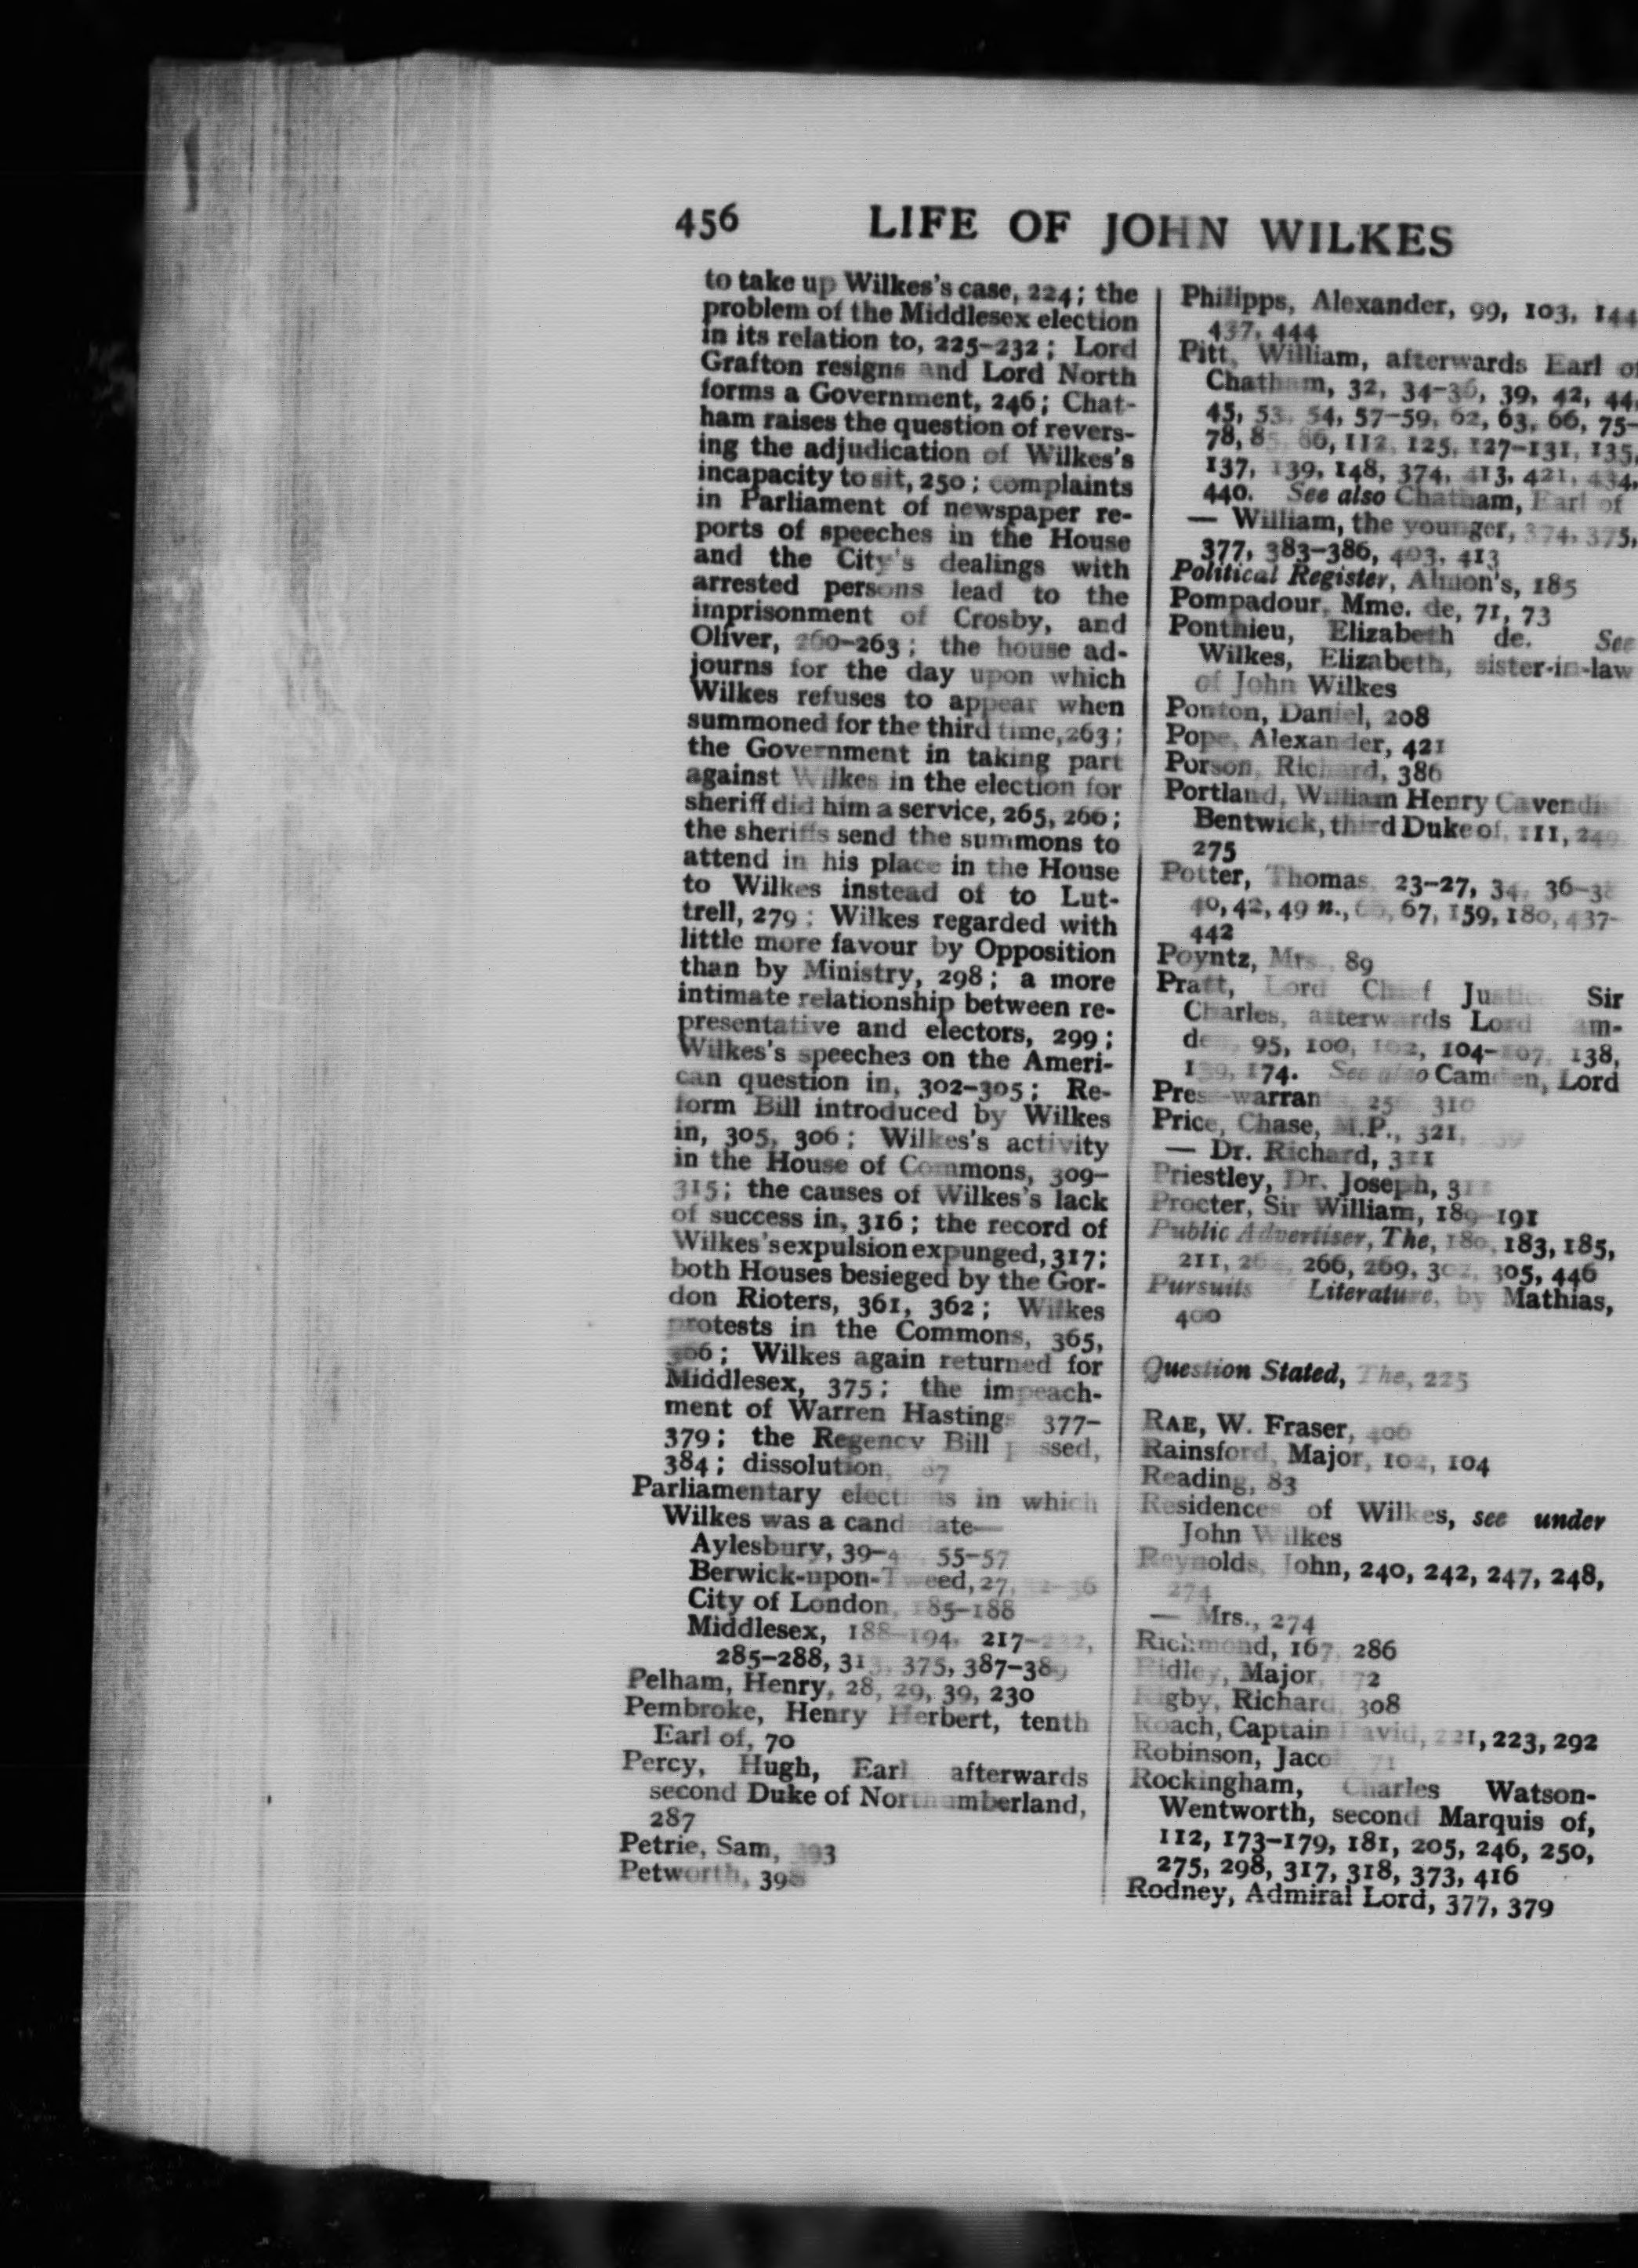 456 LIFE OF JOHN WILKES
to take up Wilkes's case, 224; the
problem of the Middlesex election
in its relation to, 225–232; Lord
Grafton resigns and Lord North
forms a Government, 246; Chat-
ham raises the question of revers-
ing the adjudication of Wilkes's
incapacity to sit, 250; complaints
in Parliament of newspaper re-
ports of speeches in the House
and the City's dealings with
arrested persons lead to the
imprisonment of Crosby, and
Oliver, 260–263; the house ad-
journs for the day upon which
Wilkes refuses to appear when
summoned for the third time, 263;
the Government in taking part
against Wilkes in the election for
sheriff did him a service, 265, 266;
the sheriffs send the summons to
attend in his place in the House
to Wilkes instead of to Lut-
trell, 279; Wilkes regarded with
little more favour by Opposition
than by Ministry, 298; a more
intimate relationship between re-
presentative and electors, 299;
Wilkes's speeches on the Ameri-
can question in, 302–305; Re-
form Bill introduced by Wilkes
in, 305, 306; Wilkes's activity
in the House of Commons, 309–
315; the causes of Wilkes's lack
of success in, 316; the record of
Wilkes's expulsion expunged, 317;
both Houses besieged by the Gor-
don Rioters, 361, 362; Wilkes
protests in the Commons, 365,
366; Wilkes again returned for
Middlesex, 375; the impeach-
ment of Warren Hastings 377–
379; the Regency Bill passed,
384; dissolution,
Parliamentary elections in which
Wilkes was a candidate—
Aylesbury, 55–57
Berwick-upon-Tweed, 27,
City of London, 185–188
Middlesex, 188–194, 217–232,
285–288, 375, 387–389
Pelham, Henry, 28, 29, 39, 230
Pembroke, Henry Herbert, tenth
Earl of, 70
Percy, Hugh, Earl afterwards
second Duke of Northumberland,
287
Petrie, Sam, 393
Petworth, 398
Philipps, Alexander, 99, 103, 144
437, 444
Pitt, William, afterwards Earl of
Chatham, 32, 34–36, 39, 42, 44,
45, 53, 54, 57–59, 62, 63, 66, 75–
78, 85, 86, 112, 125, 127–131, 135,
137, 139, 148, 374, 413, 421, 434,
440. See also Chatham, Earl of
— William, the younger, 374, 375,
377, 383–386, 403, 413
Political Register, Almon's, 185
Pompadour, Mme. de, 71, 73
Ponthieu, Elizabeth de. See
Wilkes, Elizabeth, sister-in-law
of John Wilkes
Ponton, Daniel, 208
Pope, Alexander, 421
Porson, Richard, 386
Portland, William Henry Cavendish
Bentwick, third Duke of, 111, 249
275
Potter, Thomas, 23–27, 34, 36–38
40, 42, 49 n., 67, 159, 180, 437–
442
Poyntz, Mrs., 89
Pratt, Lord Chief Justice Sir
Charles, afterwards Lord Cam-
den, 95, 100, 102, 104–107, 138,
139, 174. See also Camden, Lord
Press-warrants, 310
Price, Chase, M.P., 321,
— Dr. Richard, 311
Priestley, Dr. Joseph, 311
Procter, Sir William, 189–191
Public Advertiser, The, 180, 183, 185,
211, 266, 269, 302, 305, 446
Pursuits Literature, by Mathias,
400
Question Stated, The, 225
RAE, W. Fraser, 406
Rainsford, Major, 102, 104
Reading, 83
Residences of Wilkes, see under
John Wilkes
Reynolds, John, 240, 242, 247, 248,
274
— Mrs., 274
Richmond, 167, 286
Ridley, Major, 72
Rigby, Richard, 308
Roach, Captain David, 221, 223, 292
Robinson, Jacob 71
Rockingham, Charles Watson-
Wentworth, second Marquis of,
112, 173–179, 181, 205, 246, 250,
275, 298, 317, 318, 373, 416
Rodney, Admiral Lord, 377, 379